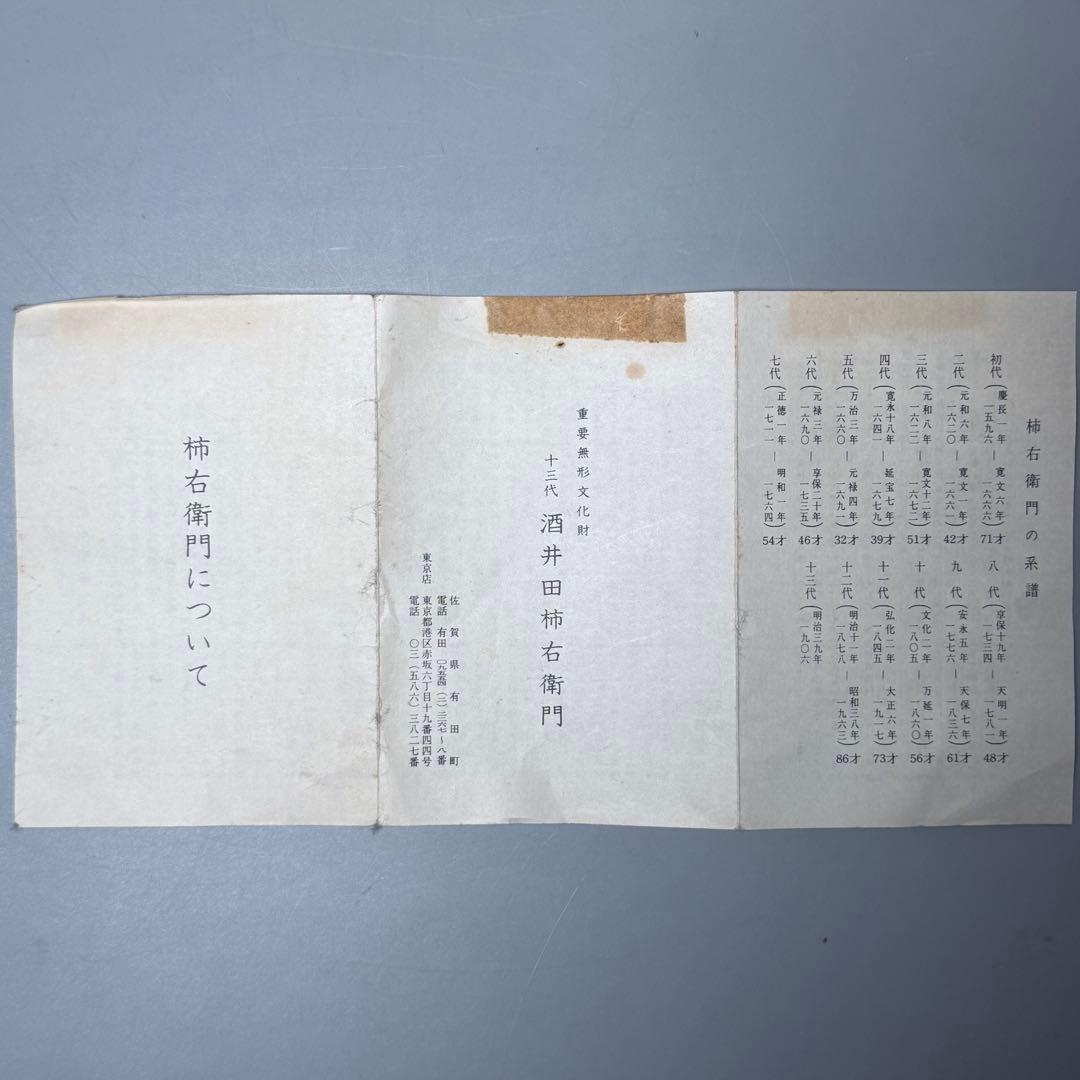 柿右衛門の系譜
初代(慶長一年 一五九六 ― 寛文六年 一六六六)71才
二代(元和六年 一六二〇 ― 寛文一年 一六六一)42才
三代(元和八年 一六二二 ― 寛文十二年 一六七二)51才
四代(寛永十八年 一六四一 ― 延宝七年 一六七九)39才
五代(万治三年 一六六〇 ― 元禄四年 一六九一)32才
六代(元禄三年 一六九〇 ― 享保二十年 一七三五)46才
七代(正徳一年 一七一一 ― 明和一年 一七六四)54才
八代(享保十九年 一七三四 ― 天明一年 一七八一)48才
九代(安永五年 一七七六 ― 天保七年 一八三六)61才
十代(文化二年 一八〇五 ― 万延一年 一八六〇)56才
十一代(弘化二年 一八四五 ― 大正六年 一九一七)73才
十二代(明治十一年 一八七八 ― 昭和三八年 一九六三)86才
十三代(明治三九年 一九〇六
重要無形文化財
十三代 酒井田柿右衛門
佐賀県有田町
電話 有田(〇九五五四)(二)二二六七〜八番
東京店 東京都港区赤坂六丁目十九番四四号
電話 〇三(五八六)三八二七番
柿右衛門について